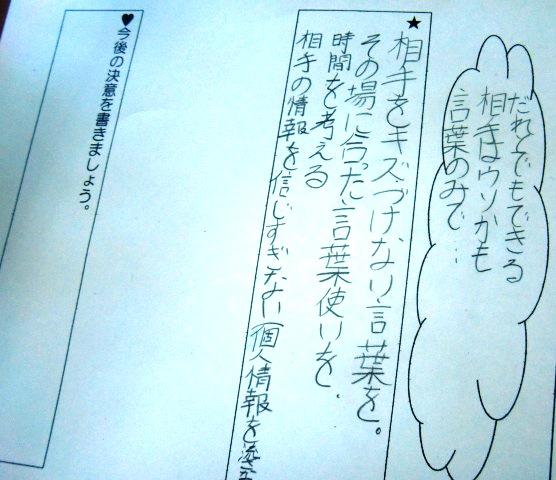 だれでもできる
相手はウソかも
言葉のみで…
★
相手をキズつけない言葉を。
その場に合った言葉使いを。
時間を考える
相手の情報を信じすぎない 個人情報を
♥今後の決意を書きましょう。